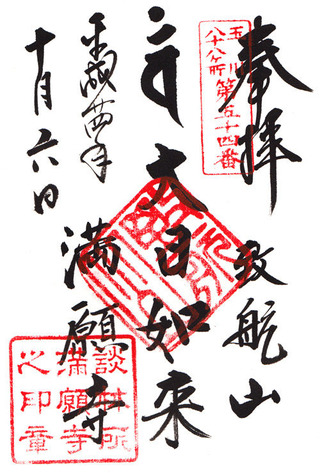 奉拝
玉川
八十八ヶ所 第五十四番
致航山
大日如来
満願寺
平成廿四年
十月六日
談林所
満願寺
之印章